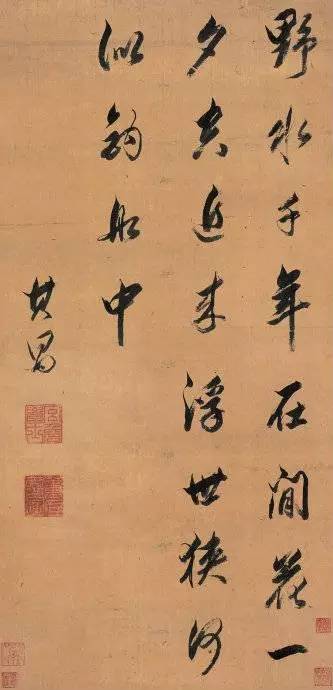 野水千年在闲花一
夕空近来浮世狭何
似钓船中
其昌